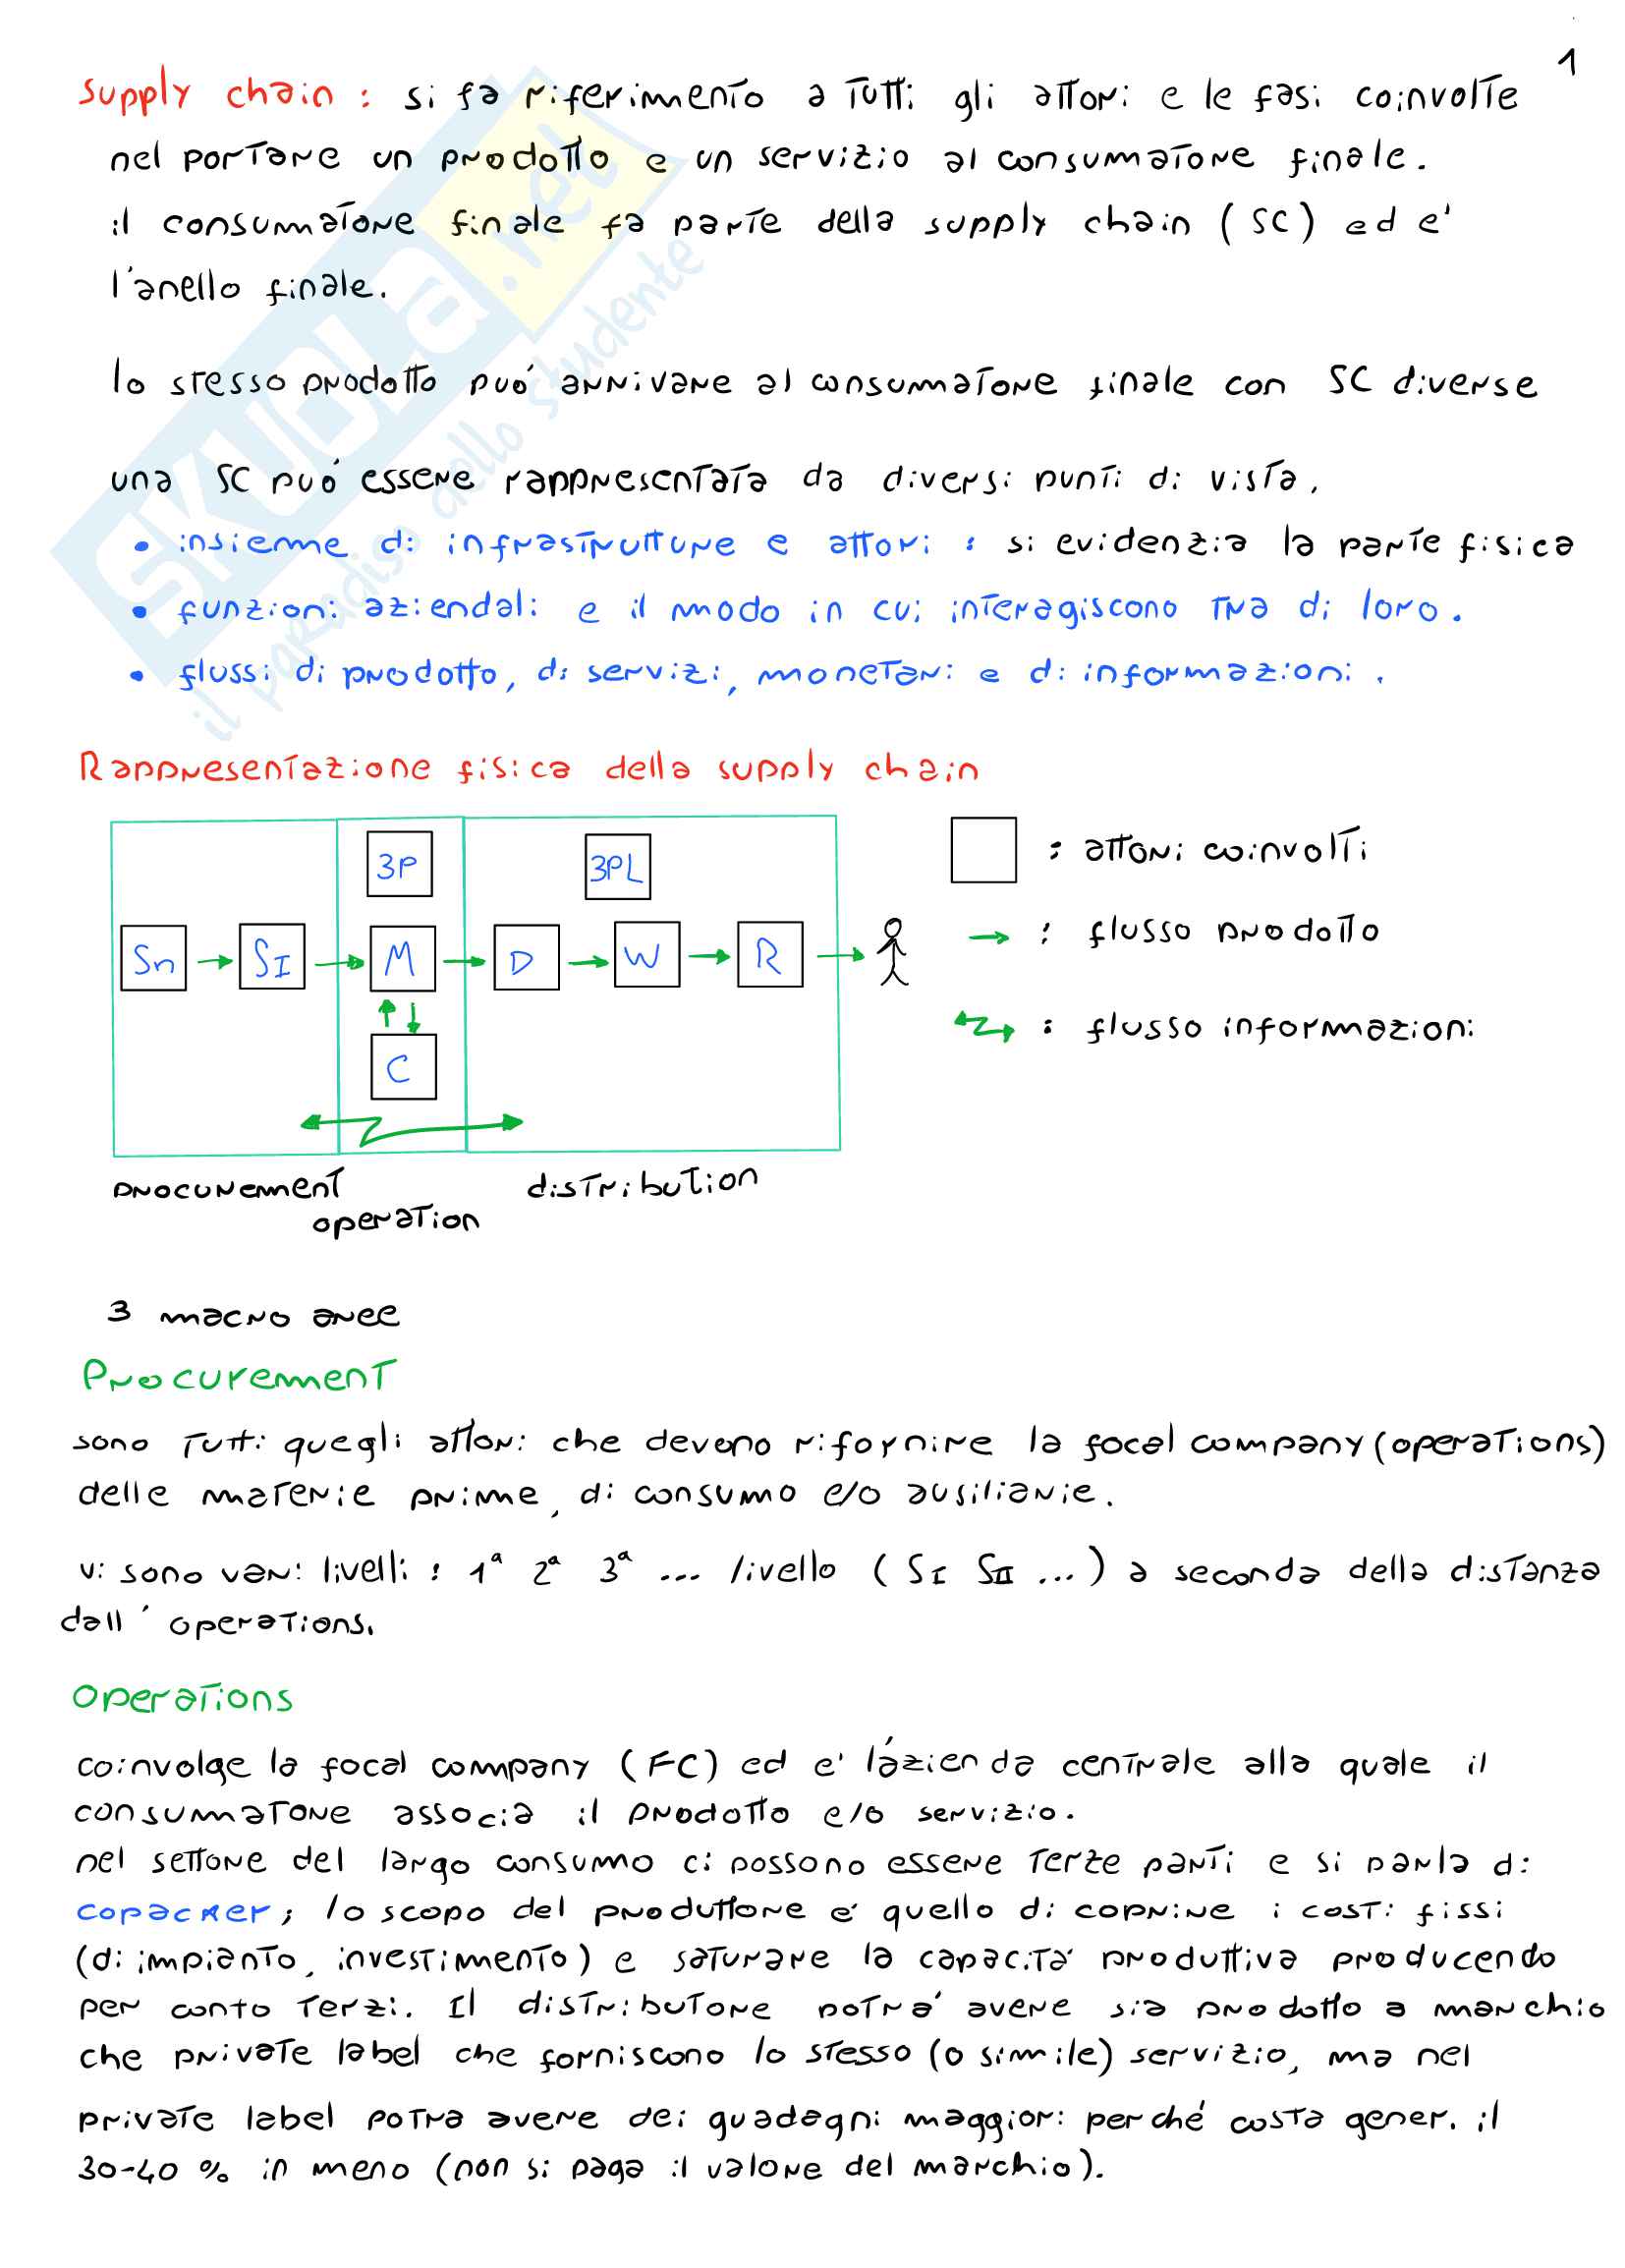 1
supply chain : si fa riferimento a tutti gli attori e le fasi coinvolte
nel portare un prodotto e un servizio al consumatore finale.
il consumatore finale fa parte della supply chain (SC) ed e'
l'anello finale.
lo stesso prodotto può arrivare al consumatore finale con SC diverse
una SC può essere rappresentata da diversi punti di vista.
• insieme di infrastrutture e attori : si evidenzia la parte fisica
• funzioni aziendali e il modo in cui interagiscono tra di loro.
• flussi di prodotto, di servizi, monetari e di informazioni.
Rappresentazione fisica della supply chain
3P 3PL : attori coinvolti
Sn → SI → M → D → W → R → → : flusso prodotto
C : flusso informazioni
procurement distribution
operation
3 macro aree
Procurement
sono tutti quegli attori che devono rifornire la focal company (operations)
delle materie prime, di consumo e/o ausiliarie.
vi sono vari livelli : 1ª 2ª 3ª ... livello (SI SII ...) a seconda della distanza
dall' operations.
Operations
coinvolge la focal company (FC) ed e' l'azienda centrale alla quale il
consumatore associa il prodotto e/o servizio.
nel settore del largo consumo ci possono essere terze parti e si parla di
copacker; lo scopo del produttore e' quello di coprire i costi fissi
(di impianto, investimento) e saturare la capacità produttiva producendo
per conto terzi. Il distributore potra' avere sia prodotto a marchio
che private label che forniscono lo stesso (o simile) servizio, ma nel
private label potra avere dei guadagni maggiori perché costa gener. il
30-40 % in meno (non si paga il valore del marchio).
SKUOLA.net
il paradiso dello studente